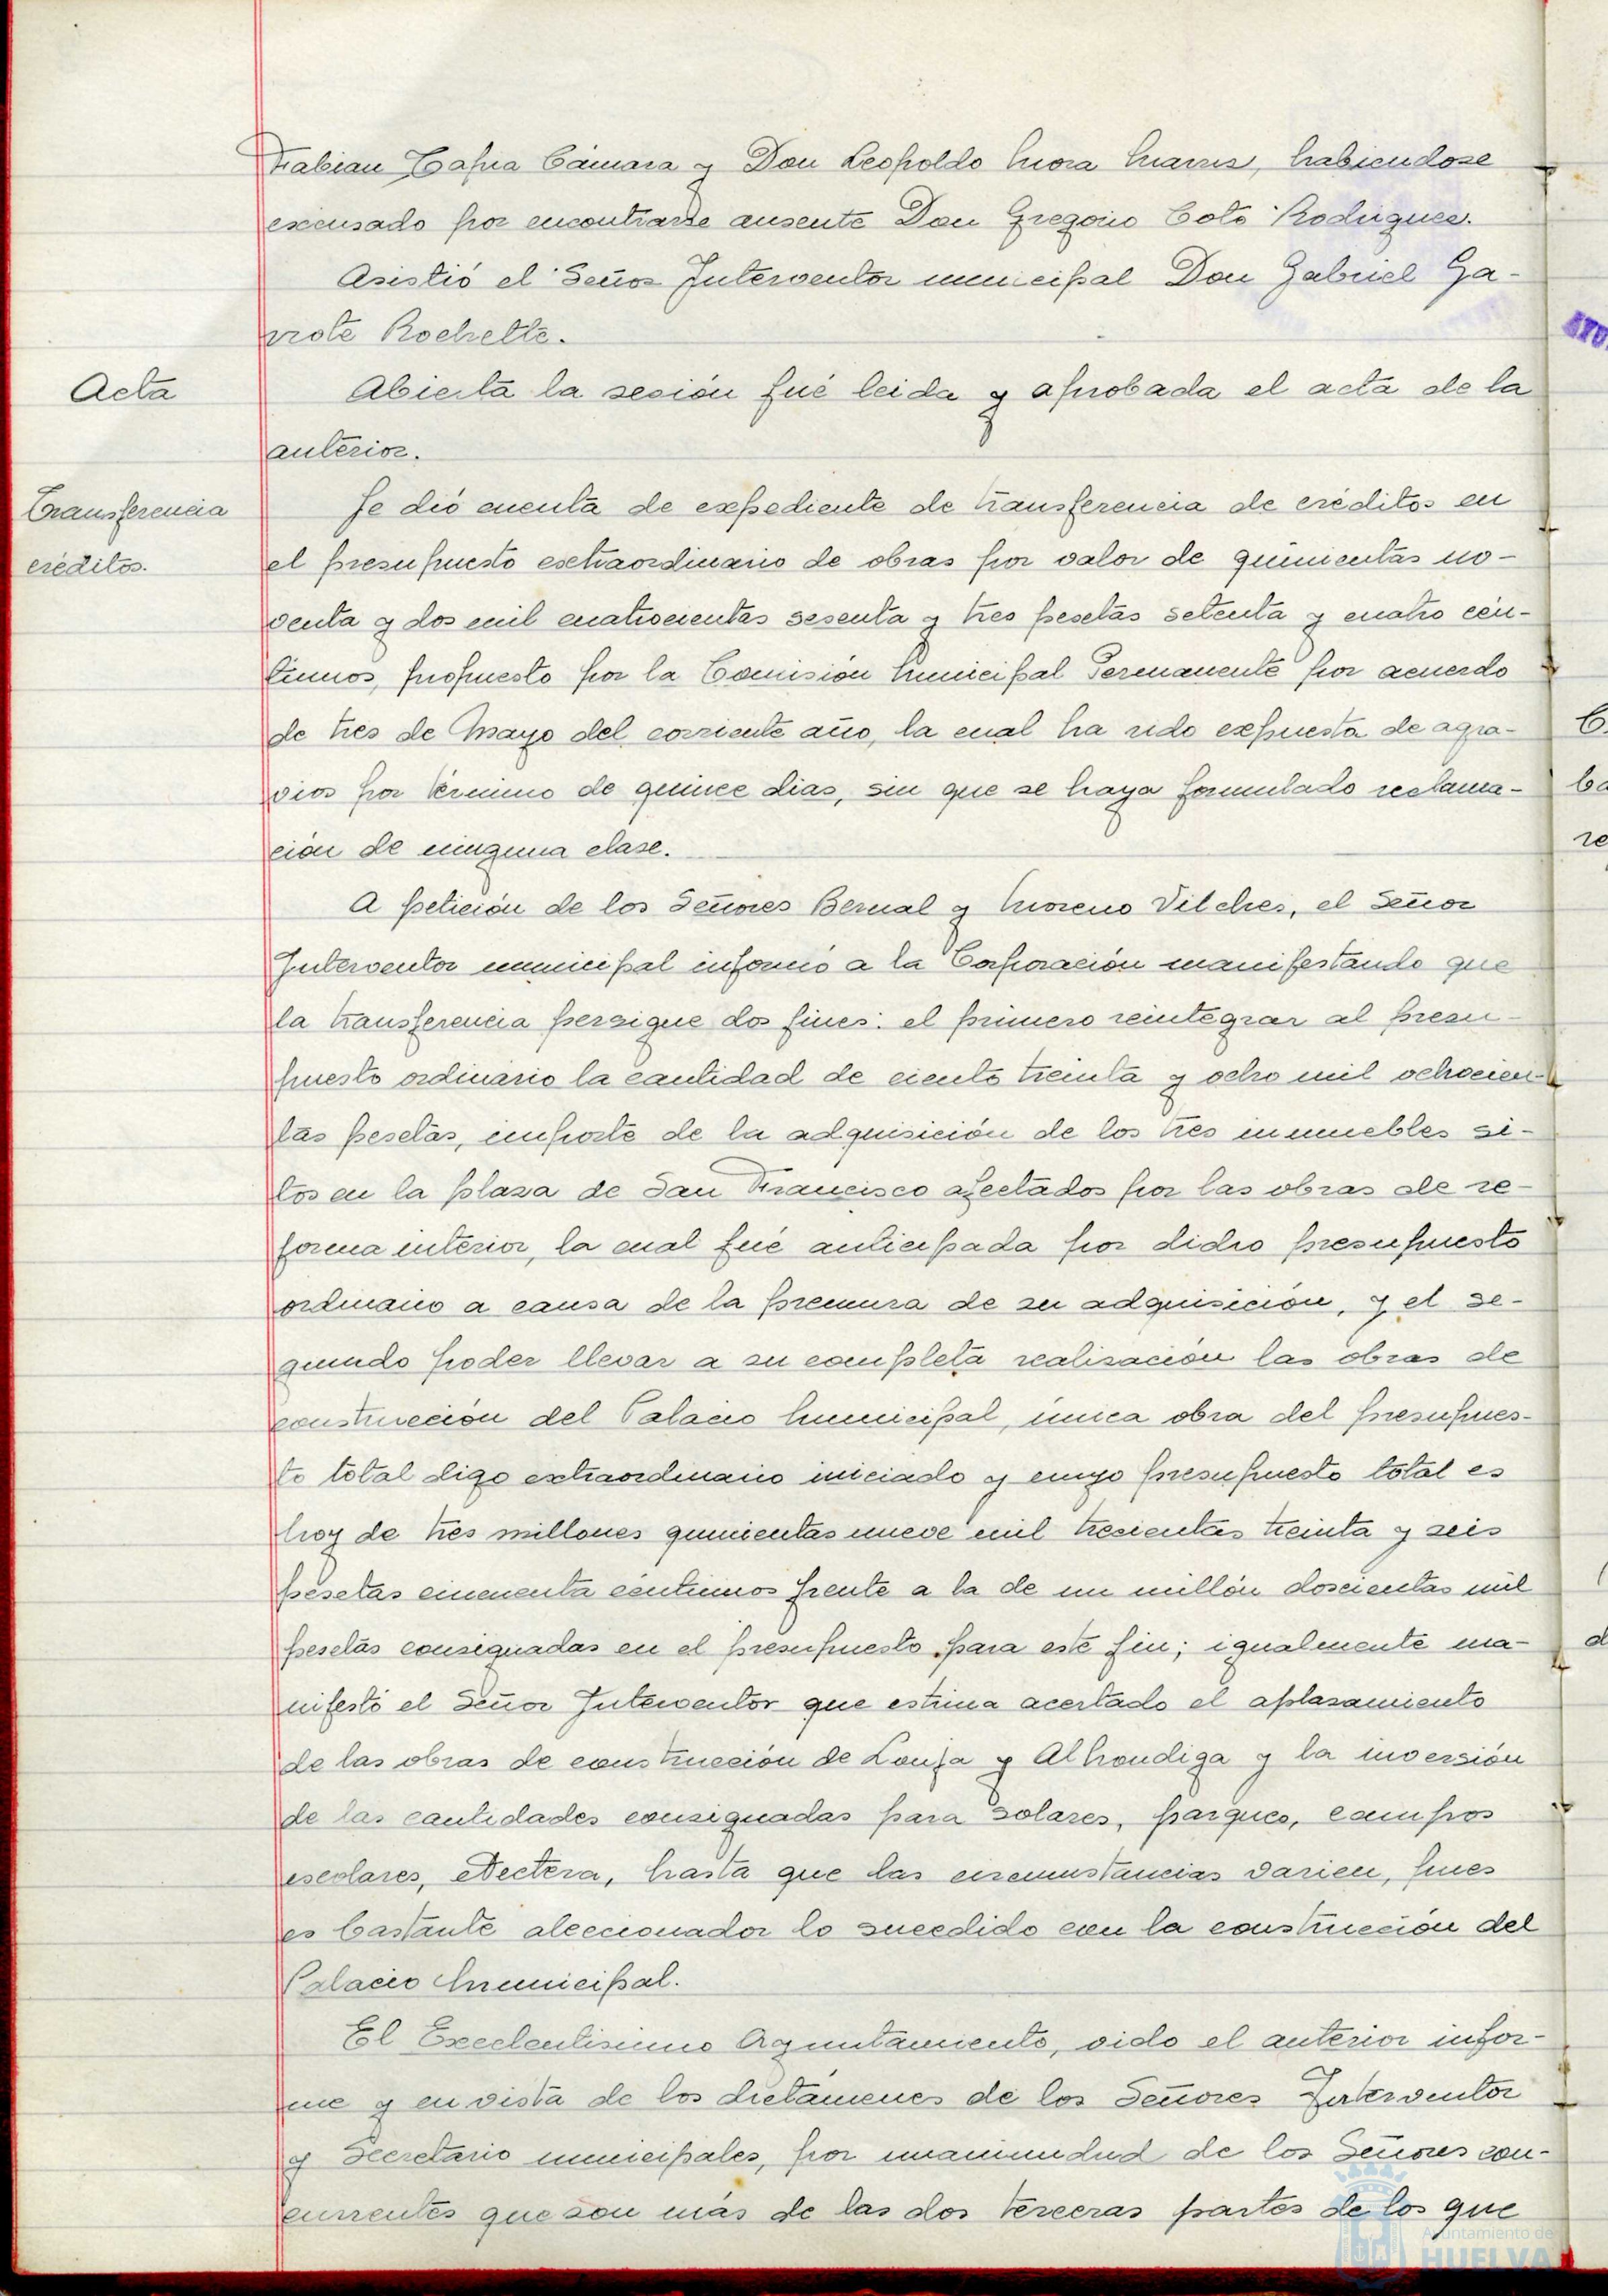 Fabian Tapia Cámara y Don Leopoldo Mora Marrs, habiendose
excusado por encontrarse ausente Don Gregorio Coto Rodriguez.
Asistió el Señor Interventor municipal Don Gabriel Ga-
rrote Rochelte.
Acta
Abierta la sesión fué leida y aprobada el acta de la
anterior.
Transferencia
créditos.
Se dió cuenta de expediente de transferencia de créditos en
el presupuesto extraordinario de obras por valor de quinientas no-
venta y dos mil cuatrocientas sesenta y tres pesetas setenta y cuatro cén-
timos, propuesto por la Comisión Municipal Permanente por acuerdo
de tres de Mayo del corriente año, la cual ha sido expuesta de agra-
vios por término de quince dias, sin que se haya formulado reclama-
ción de ninguna clase.
A petición de los Señores Bernal y Moreno Vilches, el Señor
Interventor municipal informó a la Corporación manifestando que
la transferencia persigue dos fines: el primero reintegrar al presu-
puesto ordinario la cantidad de ciento treinta y ocho mil ochocien-
tas pesetas, importe de la adquisición de los tres inmuebles si-
tos en la plaza de San Francisco afectados por las obras de re-
forma interior, la cual fué anticipada por dicho presupuesto
ordinario a causa de la premura de su adquisición, y el se-
gundo poder llevar a su completa realización las obras de
construcción del Palacio Municipal, única obra del presupues-
to total digo extraordinario iniciado y cuyo presupuesto total es
hoy de tres millones quinientas nueve mil trescientas treinta y seis
pesetas cincuenta céntimos frente a la de un millón doscientas mil
pesetas consignadas en el presupuesto para este fin; igualmente ma-
nifestó el Señor Interventor que estima acertado el aplazamiento
de las obras de construcción de Lonja y Alhondiga y la inversión
de las cantidades consignadas para solares, parques, campos
escolares, etcétera, hasta que las circunstancias varien, pues
es bastante aleccionador lo sucedido con la construcción del
Palacio Municipal.
El Excelentisimo Ayuntamiento, oido el anterior infor-
me y en vista de los dictámenes de los Señores Interventor
y Secretario municipales, por unanimidad de los Señores con-
currentes que son más de las dos terceras partes de los que
Ayuntamiento de
HUELVA